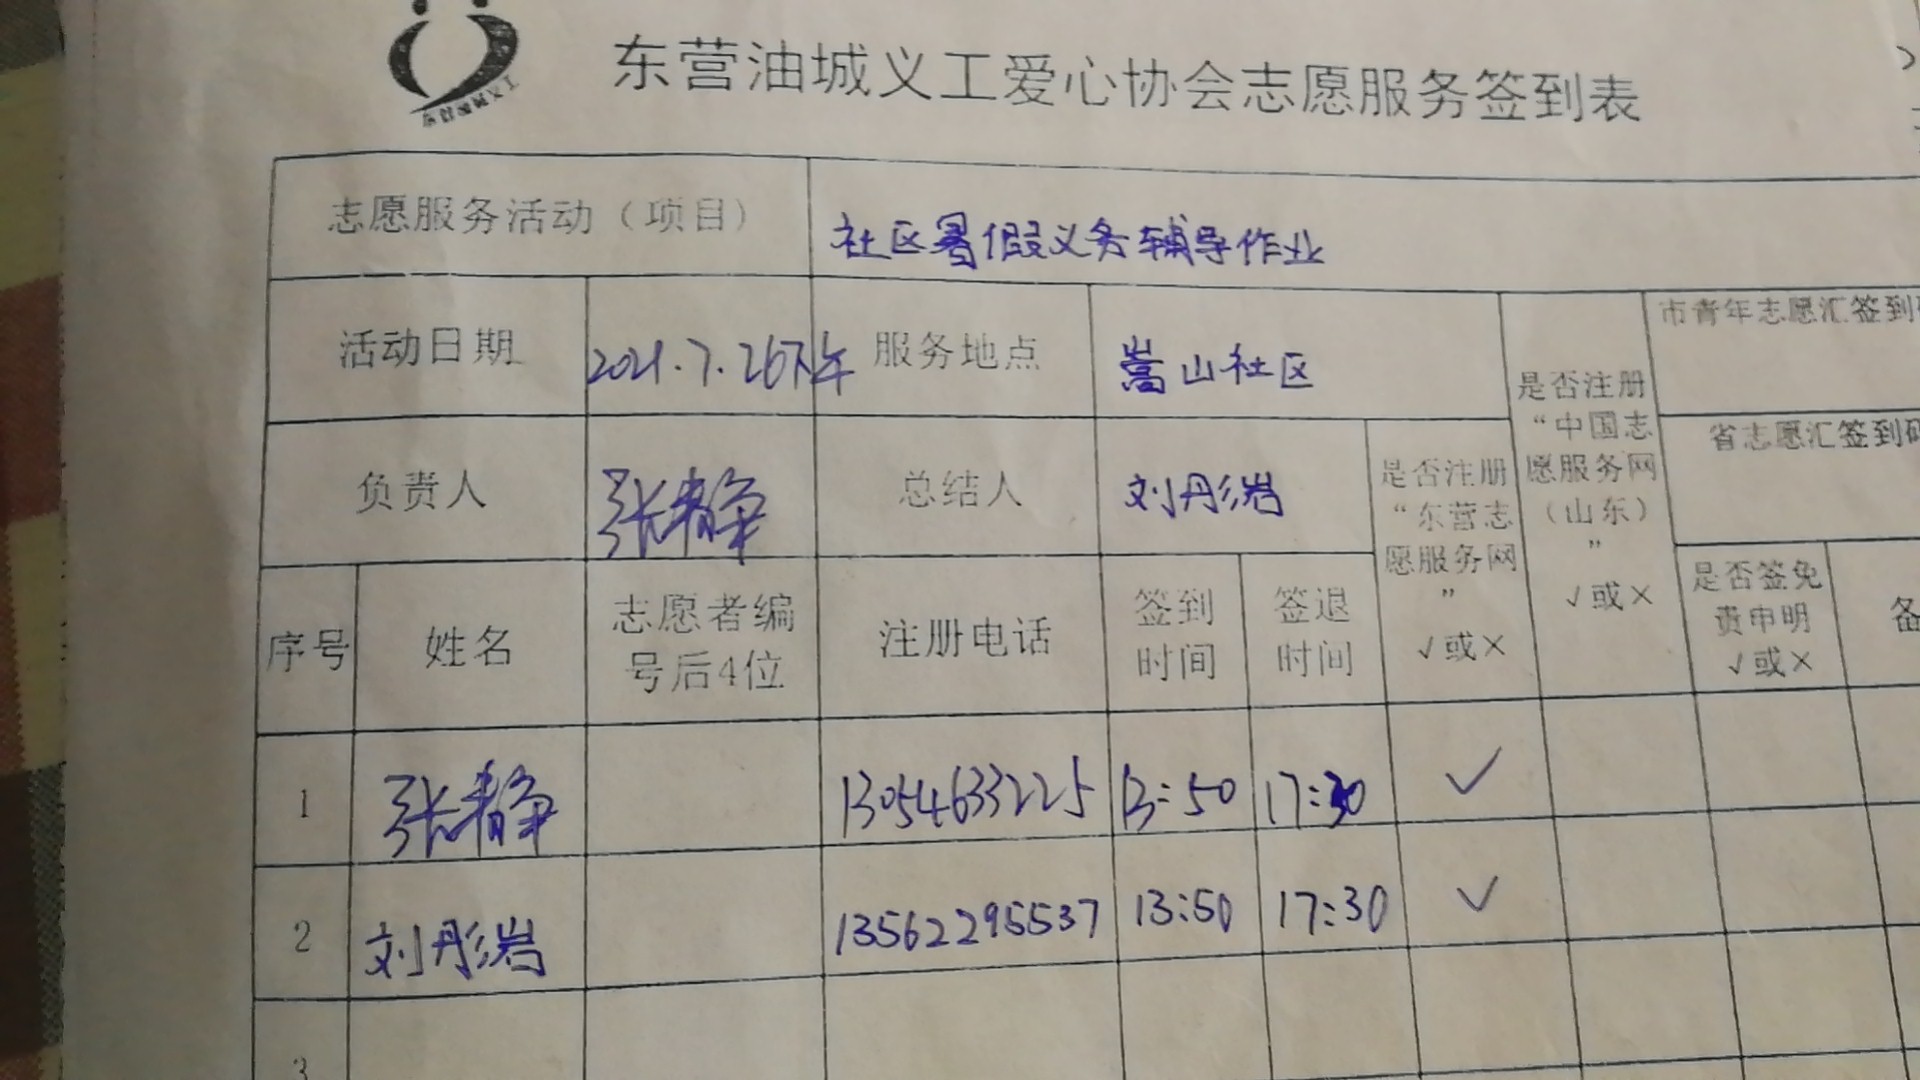 东营油城义工
东营油城义工爱心协会志愿服务签到表
志愿服务活动（项目） 社区暑假义务辅导作业
活动日期 2021.7.26下午 服务地点 嵩山社区
负责人 张静 总结人 刘彤岩
是否注册
“东营志
愿服务网
”
√或×
是否注册
“中国志
愿服务网
（山东）
”
√或×
市青年志愿汇签到
省志愿汇签到码
是否签免
费申明
√或×
备
序号 姓名 志愿者编
号后4位
注册电话 签到
时间
签退
时间
1 张静 13054633225 13:50 17:30 √
2 刘彤岩 13562295537 13:50 17:30 √
3